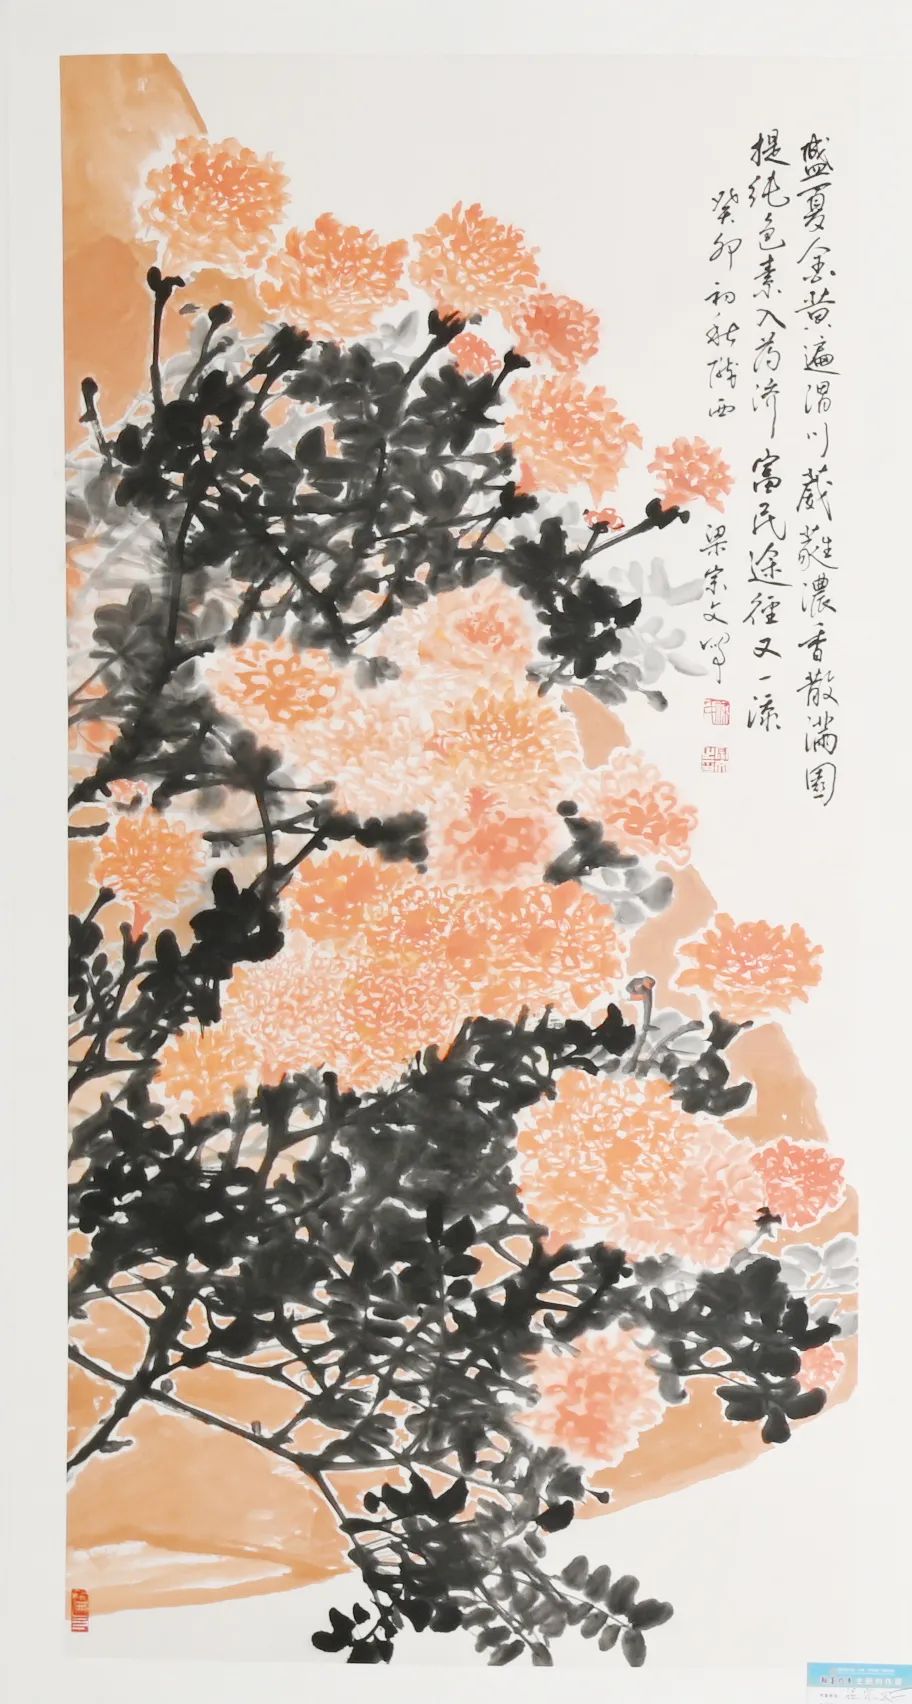 盛夏金黄遍渭川葳蕤浓香散满园
提纯色素入药济富民途径又一添
癸卯初秋陇西 梁宗文写